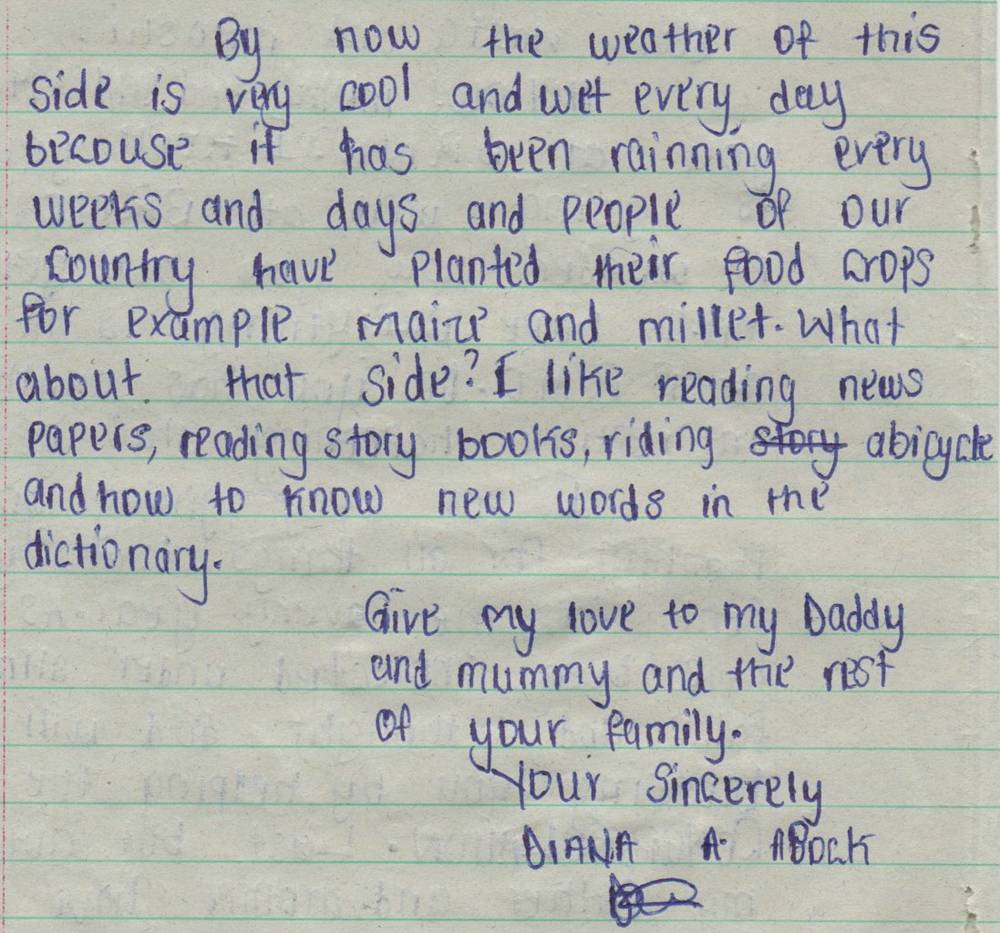 By now the weather of this
side is very cool and wet every day
becouse it has been rainning every
weeks and days and people of our
country have planted their food crops
for example maize and millet. What
about that side? I like reading news
papers, reading story books, riding story abicycle
and how to know new words in the
dictionary.
Give my love to my Daddy
and mummy and the rest
of your family.
Your Sincerely
DIANA A. ABOCK